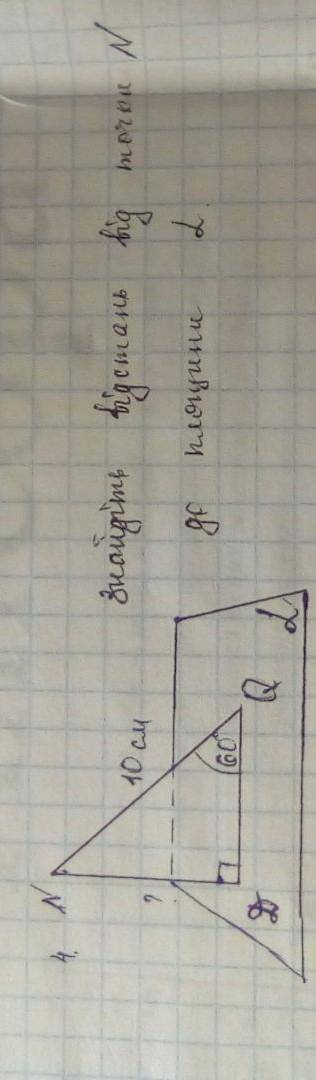 4.
N
10 см
?
60°
Q
D
L
Знайдіть відстань від точки N
до площини L.